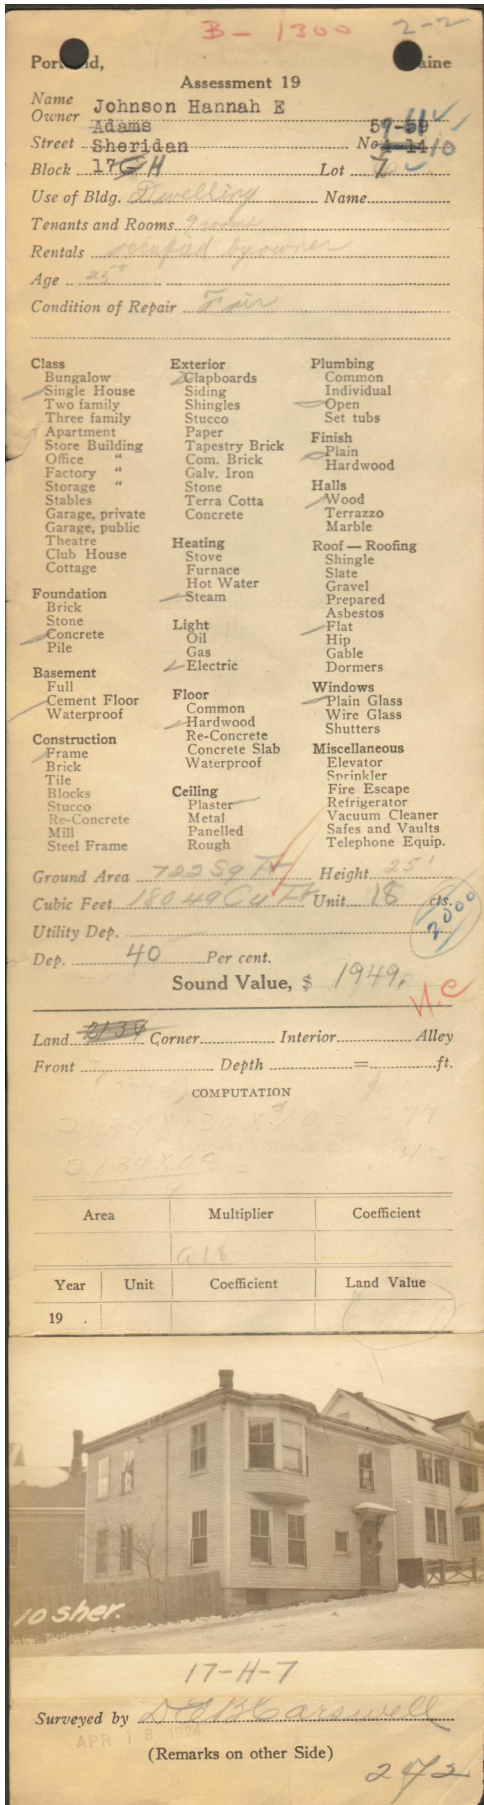 B - 1300 2-2
Portland, Maine
Assessment 19
Name
Owner Johnson Hannah E
Adams 59-
Street Sheridan No. 10
Block 17 H Lot 7
Use of Bldg. Dwelling Name
Tenants and Rooms 9 rooms
Rentals occupied by owner
Age 25+
Condition of Repair Fair
Class
Bungalow
Single House
Two family
Three family
Apartment
Store Building
Office "
Factory "
Storage "
Stables
Garage, private
Garage, public
Theatre
Club House
Cottage
Foundation
Brick
Stone
Concrete
Pile
Basement
Full
Cement Floor
Waterproof
Construction
Frame
Brick
Tile
Blocks
Stucco
Re-Concrete
Mill
Steel Frame
Exterior
Clapboards
Siding
Shingles
Stucco
Paper
Tapestry Brick
Com. Brick
Galv. Iron
Stone
Terra Cotta
Concrete
Heating
Stove
Furnace
Hot Water
Steam
Light
Oil
Gas
Electric
Floor
Common
Hardwood
Re-Concrete
Concrete Slab
Waterproof
Ceiling
Plaster
Metal
Panelled
Rough
Plumbing
Common
Individual
Open
Set tubs
Finish
Plain
Hardwood
Halls
Wood
Terrazzo
Marble
Roof — Roofing
Shingle
Slate
Gravel
Prepared
Asbestos
Flat
Hip
Gable
Dormers
Windows
Plain Glass
Wire Glass
Shutters
Miscellaneous
Elevator
Sprinkler
Fire Escape
Refrigerator
Vacuum Cleaner
Safes and Vaults
Telephone Equip.
Ground Area 722 Sq Ft Height 25'
Cubic Feet 18049 Cu Ft Unit 18 cts.
Utility Dep. 2000
Dep. 40 Per cent.
Sound Value, $ 1949.
N.C
Land 2134 Corner Interior Alley
Front Depth = ft.
COMPUTATION
Area Multiplier Coefficient
a18
Year Unit Coefficient Land Value
19 .
10 sher.
17-H-7
Surveyed by Carswell
APR 18 1924
(Remarks on other Side)